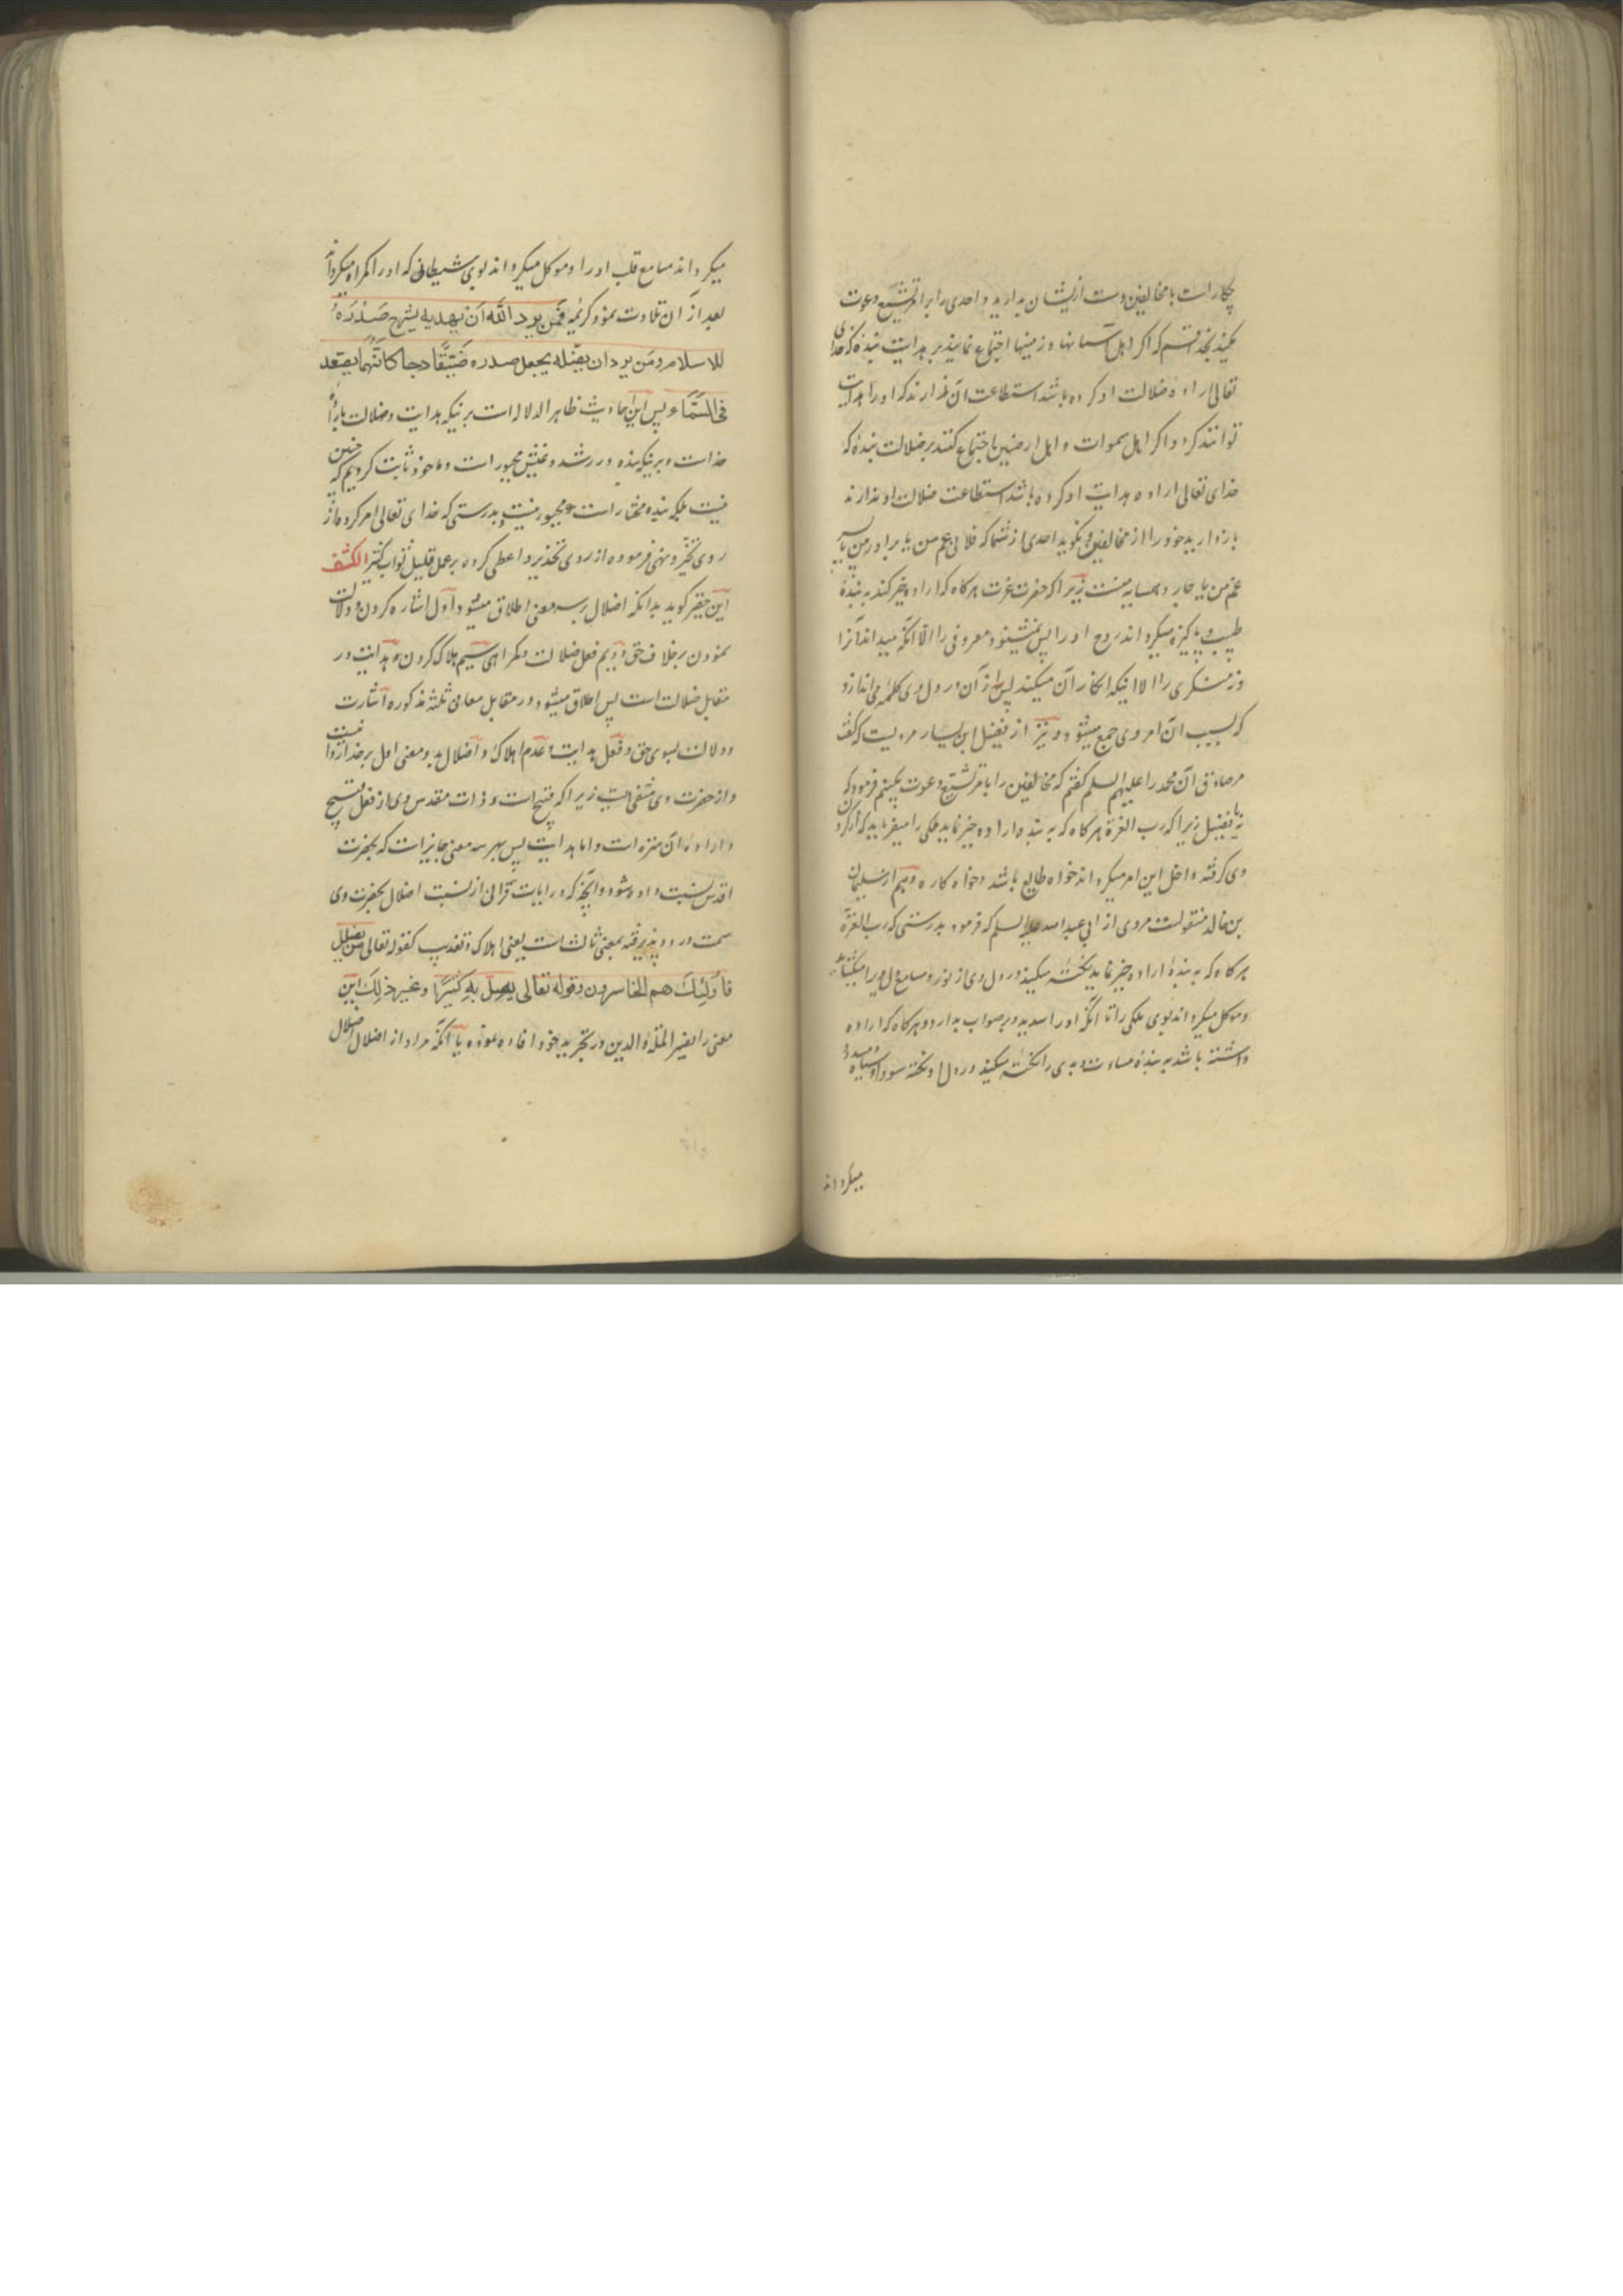 چکار است با مخالفین دست ازیشان بدارید و احدی را بر امر تشیع دعوت
مکنید بخدا قسم که اگر اهل آسمانها و زمینها اجتماع نمایند بر هدایت بندهٔ که خدای
تعالی اراده ضلالت او کرده باشد استطاعت آن ندارند که او را هدایت
توانند کرد و اگر اهل سموات و اهل ارضین اجتماع کنند بر ضلالت بندهٔ که
خدای تعالی اراده هدایت او کرده باشد استطاعت ضلالت او ندارند
باز دارید خود را از مخالفین و نکوید احدی از شما که فلانی عم من یا برادر من یا پسر
عم من یا جار و همسایه منست زیرا که حضرت عزت هرکاه که اراده خیر کند به بندهٔ
طیب و پاکیزه میکرداند روح او را پس نمیشنود معروفی را الا آنکه میداند آنرا
و نه منکری را الا اینکه انکار آن میکند پس از آن در دل وی کلمهٔ می اندازد
که بسبب آن امر وی جمع میشود و نیز از فضیل ابن یسار مرویست که گفت
مر صادق آل محمد را علیهم السلم کفتم که مخالفین را بامر تشیع دعوت بکنیم فرمود که
نه یا فضیل زیرا که رب العزة هرکاه که به بنده اراده خیر نماید ملکی را میفرماید که کردن
وی گرفته داخل این امر میکرداند خواه طایع باشد و خواه کاره و هم از سلیمان
بن خالد منقولست مروی از ابی عبد الله علیه السلم که فرمود بدرستی که رب العزة
هرکاه که به بندهٔ اراده خیر نماید نکته میکند در دل وی از نور و مسامع دل ویرا میکشاید
و موکل میکرداند بوی ملکی را تا آنکه او را سدید و بر صواب بدارد و هرکاه که اراده
داشته باشد به بندهٔ مساءت و بدی را نکته میکند در دل او نکته سودا و سیاه
میکرداند
میکرداند مسامع قلب او را و موکل میکرداند بوی شیطانی که او را کمراه میکرداند
بعد از آن تلاوت نمود کریمه فمن یرد الله ان یهدیه یشرح صدره
للاسلام ومن یرد ان یضله یجعل صدره ضیقا حرجا کانما یصعد
فی السماء پس این احادیث ظاهر الدلالات بر اینکه هدایت و ضلالت بارادهٔ
خداست و بر اینکه بنده در رشد و غیش مجبور است و ما خود ثابت کردیم که چنین
نیست بلکه بنده مختار است و مجبور نیست و بدرستی که خدای تعالی امر کرده از
روی تخیر و نهی فرموده از روی تحذیر و اعطی کرده بر عمل قلیل ثواب کثیر الکشف
این حقیر کوید بدانکه اضلال بر سه معنی اطلاق میشود اول اشاره کردن و دلالت
نمودن بر خلاف حق دویم فعل ضلالت و کمراهی سیم هلاک کردن و هدایت در
مقابل ضلالت است پس اطلاق میشود در مقابل معانی ثلثه مذکوره اشارت
و دلالت بسوی حق و فعل هدایت و عدم اهلاک و اضلال بدو معنی اول بر خدا روا نیست
و از حضرت وی منتفی است زیرا که قبیح است و ذات مقدس وی از فعل قبیح
و ارادهٔ آن منزه است و اما هدایت پس بهر سه معنی جایز است که بحضرت
اقدس نسبت داده شود و آنچه که در ایات قرآنی از نسبت اضلال بحضرت وی
سمت ورود پذیرفته بمعنی ثالث است یعنی اهلاک و تعذیب کقوله تعالی من یضلل
فاولئک هم الخاسرون و قوله تعالی یضل به کثیرا و غیر ذلک این
معنی را نصیر الملة والدین در تجرید خود افاده نموده یا آنکه مراد از اضلال اضلال